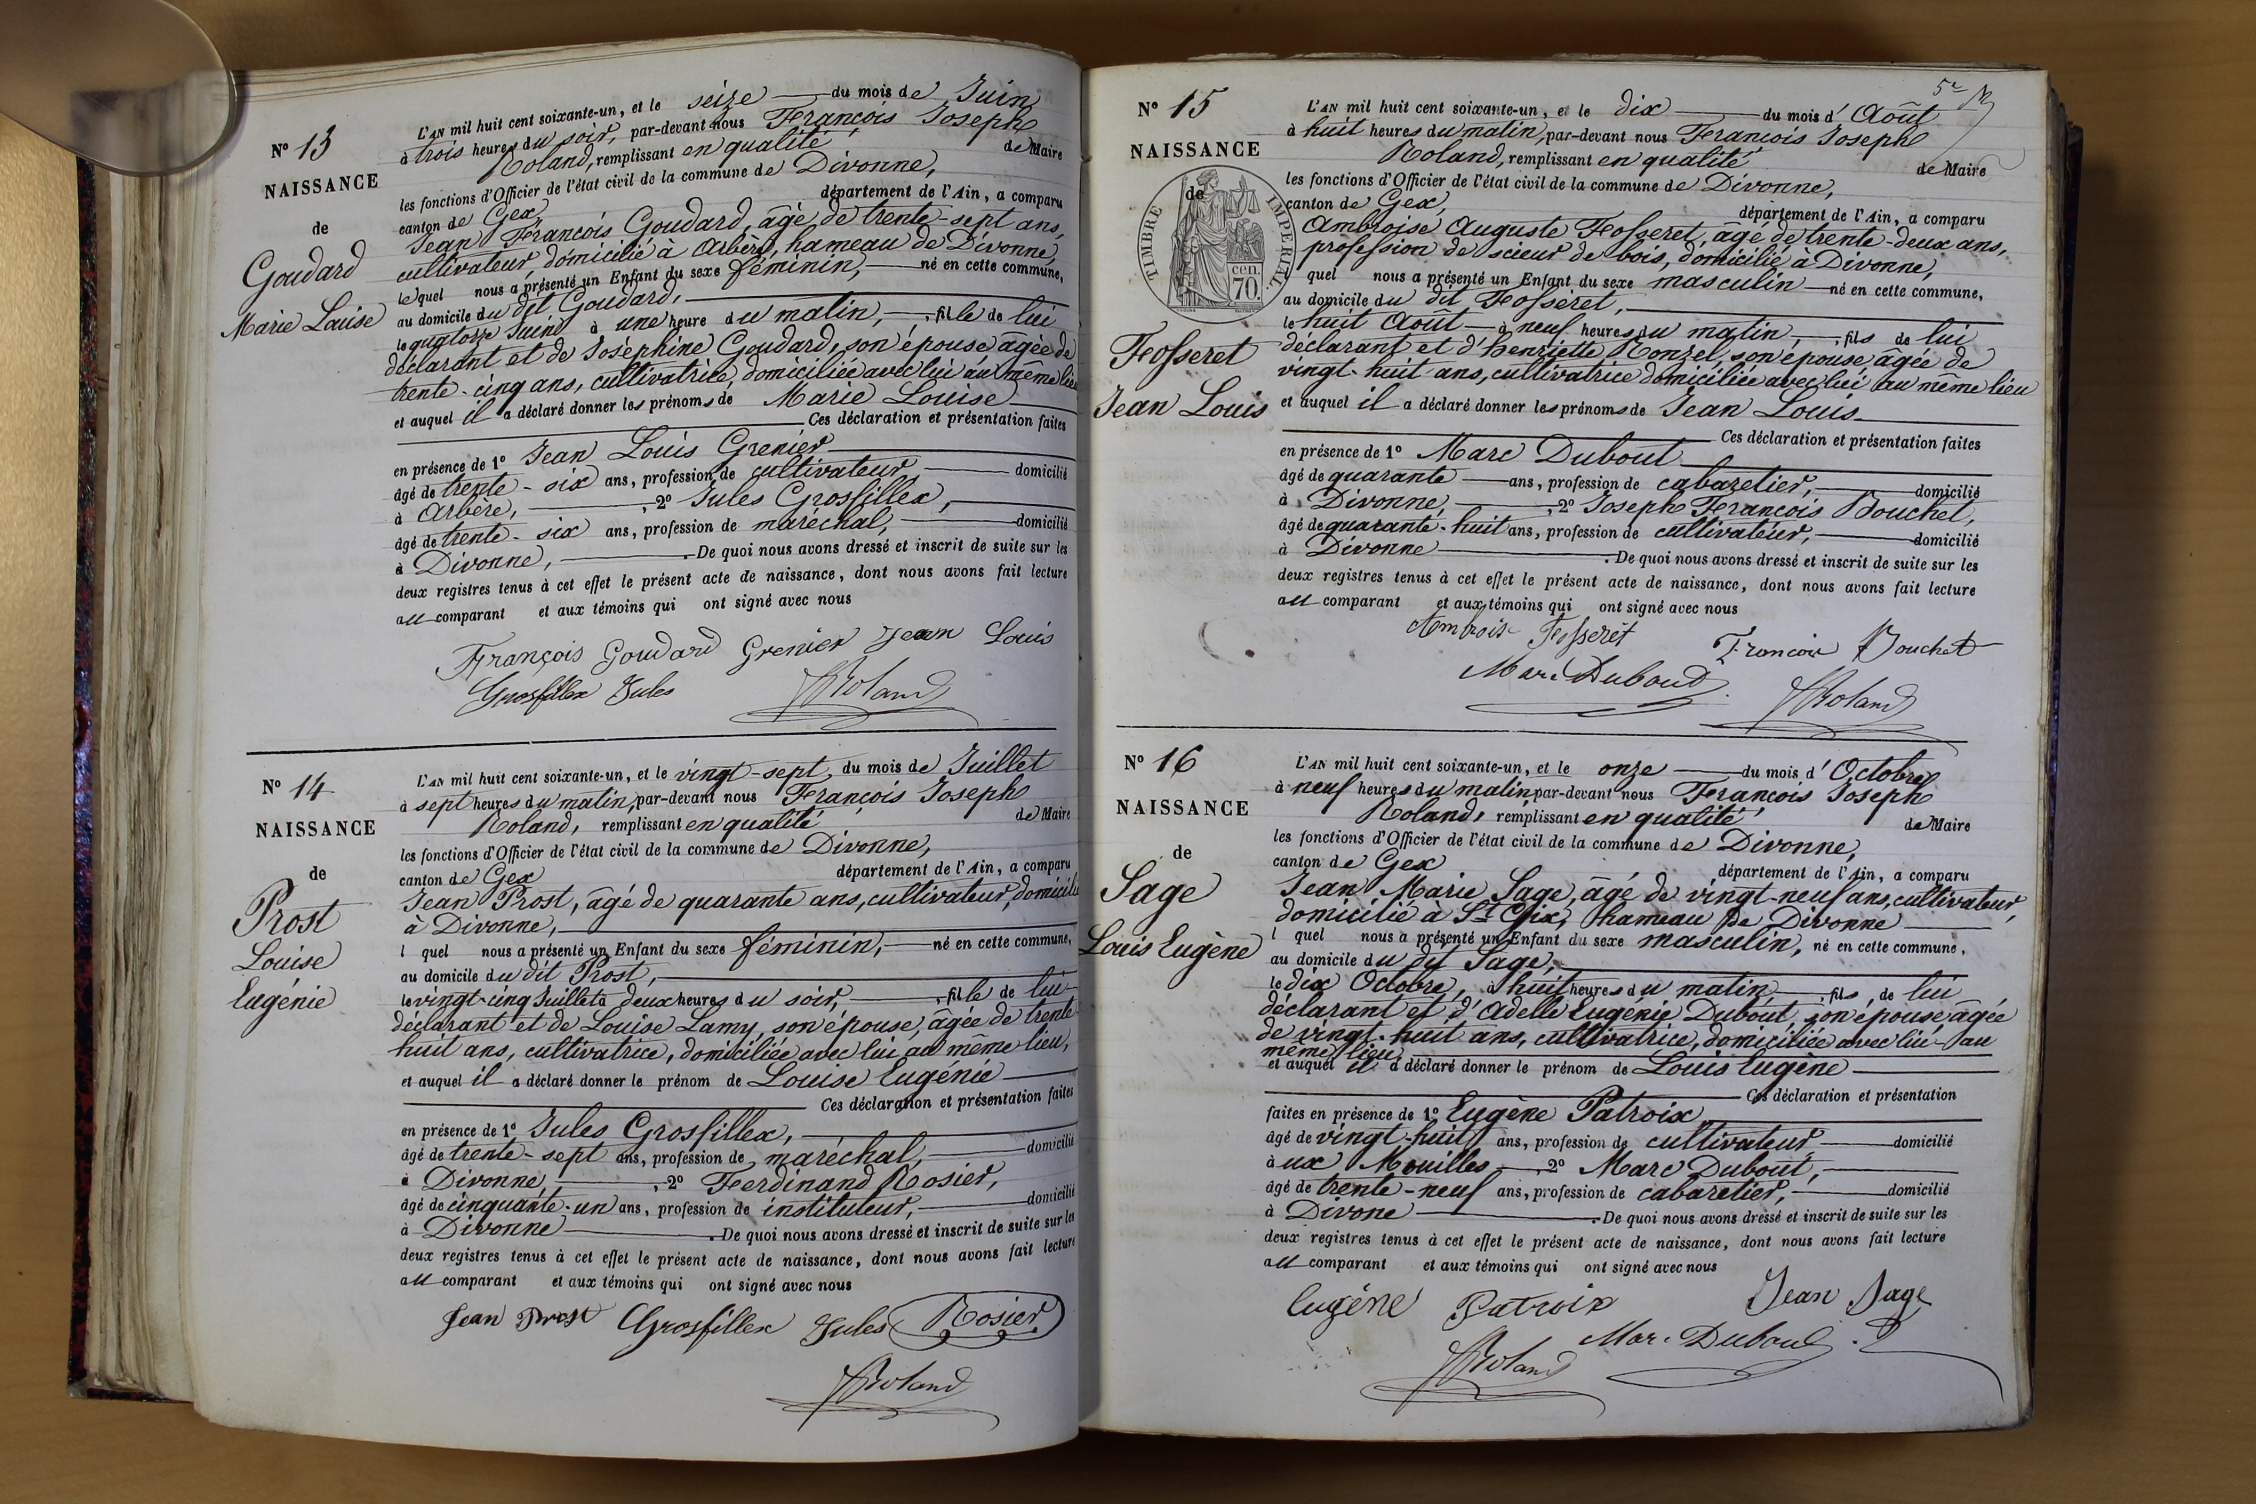 N° 13
NAISSANCE
de
Goudard
Marie Louise
L'AN mil huit cent soixante-un, et le seize du mois de Juin
à trois heures du soir, par-devant nous François Joseph
Roland, remplissant en qualité de Maire
les fonctions d'Officier de l'état civil de la commune de Divonne,
canton de Gex département de l'Ain, a comparu
Jean François Goudard, âgé de trente-sept ans,
cultivateur, domicilié à Arbère, hameau de Divonne,
lequel nous a présenté un Enfant du sexe féminin, né en cette commune,
au domicile du dit Goudard,
le quatorze Juin à une heure du matin, fille de lui
déclarant et de Joséphine Goudard, son épouse âgée de
trente-cinq ans, cultivatrice, domiciliée avec lui au même lieu
et auquel il a déclaré donner les prénoms de Marie Louise
Ces déclaration et présentation faites
en présence de 1° Jean Louis Grenier
âgé de trente-six ans, profession de cultivateur domicilié
à Arbère, 2° Jules Grosfillex,
âgé de trente-six ans, profession de maréchal, domicilié
à Divonne, De quoi nous avons dressé et inscrit de suite sur les
deux registres tenus à cet effet le présent acte de naissance, dont nous avons fait lecture
au comparant et aux témoins qui ont signé avec nous
François Goudard Grenier Jean Louis
Grosfillex Jules Roland
N° 14
NAISSANCE
de
Prost
Louise
Eugénie
L'AN mil huit cent soixante-un, et le vingt-sept du mois de Juillet
à sept heures du matin, par-devant nous François Joseph
Roland, remplissant en qualité de Maire
les fonctions d'Officier de l'état civil de la commune de Divonne,
canton de Gex département de l'Ain, a comparu
Jean Prost, âgé de quarante ans, cultivateur, domicilié
à Divonne,
l quel nous a présenté un Enfant du sexe féminin, né en cette commune,
au domicile du dit Prost,
le vingt-cinq Juillet à deux heures du soir, fille de lui
déclarant et de Louise Lamy, son épouse, âgée de trente
huit ans, cultivatrice, domiciliée avec lui au même lieu,
et auquel il a déclaré donner le prénom de Louise Eugénie
Ces déclaration et présentation faites
en présence de 1° Jules Grosfillex,
âgé de trente-sept ans, profession de maréchal, domicilié
à Divonne, 2° Ferdinand Rosier,
âgé de cinquante-un ans, profession de instituteur, domicilié
à Divonne De quoi nous avons dressé et inscrit de suite sur les
deux registres tenus à cet effet le présent acte de naissance, dont nous avons fait lecture
au comparant et aux témoins qui ont signé avec nous
Jean Prost Grosfillex Jules Rosier
Roland
N° 15
NAISSANCE
de
TIMBRE IMPERIAL.
70 cen.
Fosseret
Jean Louis
L'AN mil huit cent soixante-un, et le dix du mois d'Août
à huit heures du matin, par-devant nous François Joseph
Roland, remplissant en qualité de Maire
les fonctions d'Officier de l'état civil de la commune de Divonne,
canton de Gex, département de l'Ain, a comparu
Ambroise Auguste Fosseret, âgé de trente-deux ans,
profession de scieur de bois, domicilié à Divonne,
quel nous a présenté un Enfant du sexe masculin né en cette commune,
au domicile du dit Fosseret,
le huit Août à neuf heures du matin, fils de lui
déclarant et d'henriette Ronzel, son épouse, âgée de
vingt-huit ans, cultivatrice domiciliée avec lui au même lieu
et auquel il a déclaré donner les prénoms de Jean Louis
Ces déclaration et présentation faites
en présence de 1° Marc Dubout
âgé de quarante ans, profession de cabaretier, domicilié
à Divonne, 2° Joseph François Bouchet,
âgé de quarante-huit ans, profession de cultivateur, domicilié
à Divonne De quoi nous avons dressé et inscrit de suite sur les
deux registres tenus à cet effet le présent acte de naissance, dont nous avons fait lecture
au comparant et aux témoins qui ont signé avec nous
Ambrois Fosseret Francois Bouchet
Marc Duboud Roland
N° 16
NAISSANCE
de
Sage
Louis Eugène
L'AN mil huit cent soixante-un, et le onze du mois d'Octobre
à neuf heures du matin par-devant nous François Joseph
Roland, remplissant en qualité de Maire
les fonctions d'Officier de l'état civil de la commune de Divonne,
canton de Gex département de l'Ain, a comparu
Jean Marie Sage, âgé de vingt-neuf ans, cultivateur,
domicilié à St Gix, hameau de Divonne
l quel nous a présenté un Enfant du sexe masculin, né en cette commune,
au domicile du dit Sage,
le dix Octobre, à huit heures du matin, fils de lui
déclarant et d'Adelle Eugénie Dubout, son épouse, âgée
de vingt-huit ans, cultivatrice, domiciliée avec lui au
même lieu
et auquel il a déclaré donner le prénom de Louis Eugène
Ces déclaration et présentation
faites en présence de 1° Eugène Patroix,
âgé de vingt-huit ans, profession de cultivateur, domicilié
à ux Mouilles, 2° Marc Dubout,
âgé de trente-neuf ans, profession de cabaretier, domicilié
à Divone De quoi nous avons dressé et inscrit de suite sur les
deux registres tenus à cet effet le présent acte de naissance, dont nous avons fait lecture
au comparant et aux témoins qui ont signé avec nous
Eugéne Patroix Jean Sage
Roland Marc Duboud